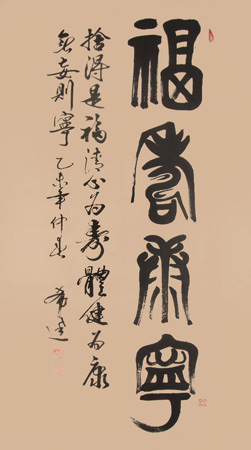 福壽康寧
捨得是福清心为壽體健为康
無妄則寧 乙未年仲春